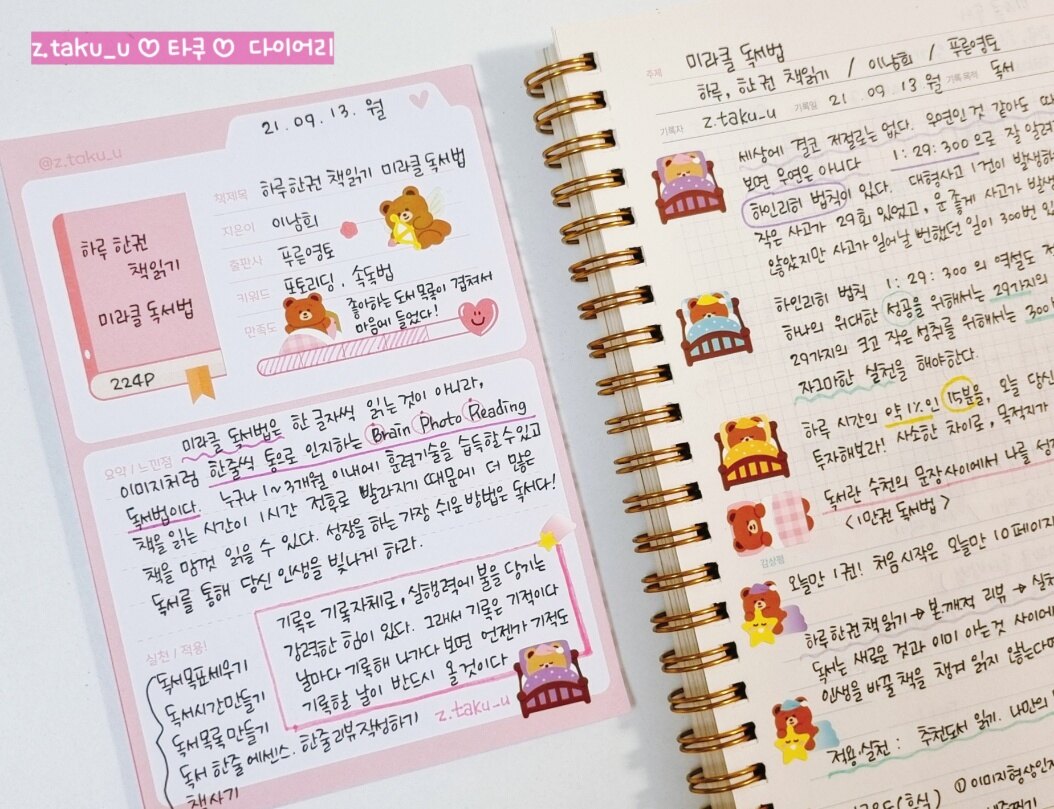 z.taku_u ♡ 타쿠 ♡ 다이어리
@z.taku_u
21. 09. 13. 월
책제목 하루한권 책읽기 미라클 독서법
지은이 이남희
출판사 푸른영토
키워드 포토리딩, 속독법
만족도 좋아하는 도서목록이 겹쳐서
마음에 들었다!
하루 한권
책읽기
미라클 독서법
224P
요약 / 느낀점
미라클 독서법은 한 글자씩 읽는 것이 아니라,
이미지처럼 한줄씩 통으로 인지하는 Brain Photo Reading
독서법이다. 누구나 1~3개월 이내에 훈련기술을 습득할 수 있고
책을 읽는 시간이 1시간 전후로 빨라지기 때문에 더 많은
책을 맘껏 읽을 수 있다. 성장을 하는 가장 쉬운 방법은 독서다!
독서를 통해 당신 인생을 빛나게 하라.
기록은 기록자체로, 실행력에 불을 당기는
강력한 힘이 있다. 그래서 기록은 기적이다
날마다 기록해 나가다 보면 언젠가 기적도
기록할 날이 반드시 올 것이다
실천 / 적용!
독서목표세우기
독서시간만들기
독서목록 만들기
독서 한줄 에센스. 한줄리뷰작성하기
책사기
z.taku_u
주제 미라클 독서법
하루, 한권 책읽기 / 이남희 / 푸른영토
기록자 z.taku_u 기록일 21 09 13 월 기록 목적 독서
세상에 결코 저절로는 없다. 우연인 것 같아도
보면 우연은 아니다 1:29:300 으로 잘 알려
하인리히 법칙이 있다. 대형사고 1건이 발생하
작은 사고가 29회 있었고, 운 좋게 사고가 발생
않았지만 사고가 일어날 뻔했던 일이 300번 있
하인리히 법칙 1:29:300 의 역설도
하나의 위대한 성공을 위해서는 29가지의
29가지의 크고 작은 성취를 위해서는 300
자그마한 실천을 해야한다.
하루 시간의 약 1%인 15분을, 오늘 당신
투자해보라! 사소한 차이로, 목적지가
독서란 수천의 문장 사이에서 나를
<1만권 독서법>
감상평
오늘만 1권! 처음 시작은 오늘만 10페이지
하루한권 책읽기 → 본깨적 리뷰 → 실천
독서는 새로운 것과 이미 아는 것 사이에
인생을 바꿀 책을 챙겨 읽지 않는다면
적용.실천 : 추천도서 읽기. 나만의
① 이미지형상인지